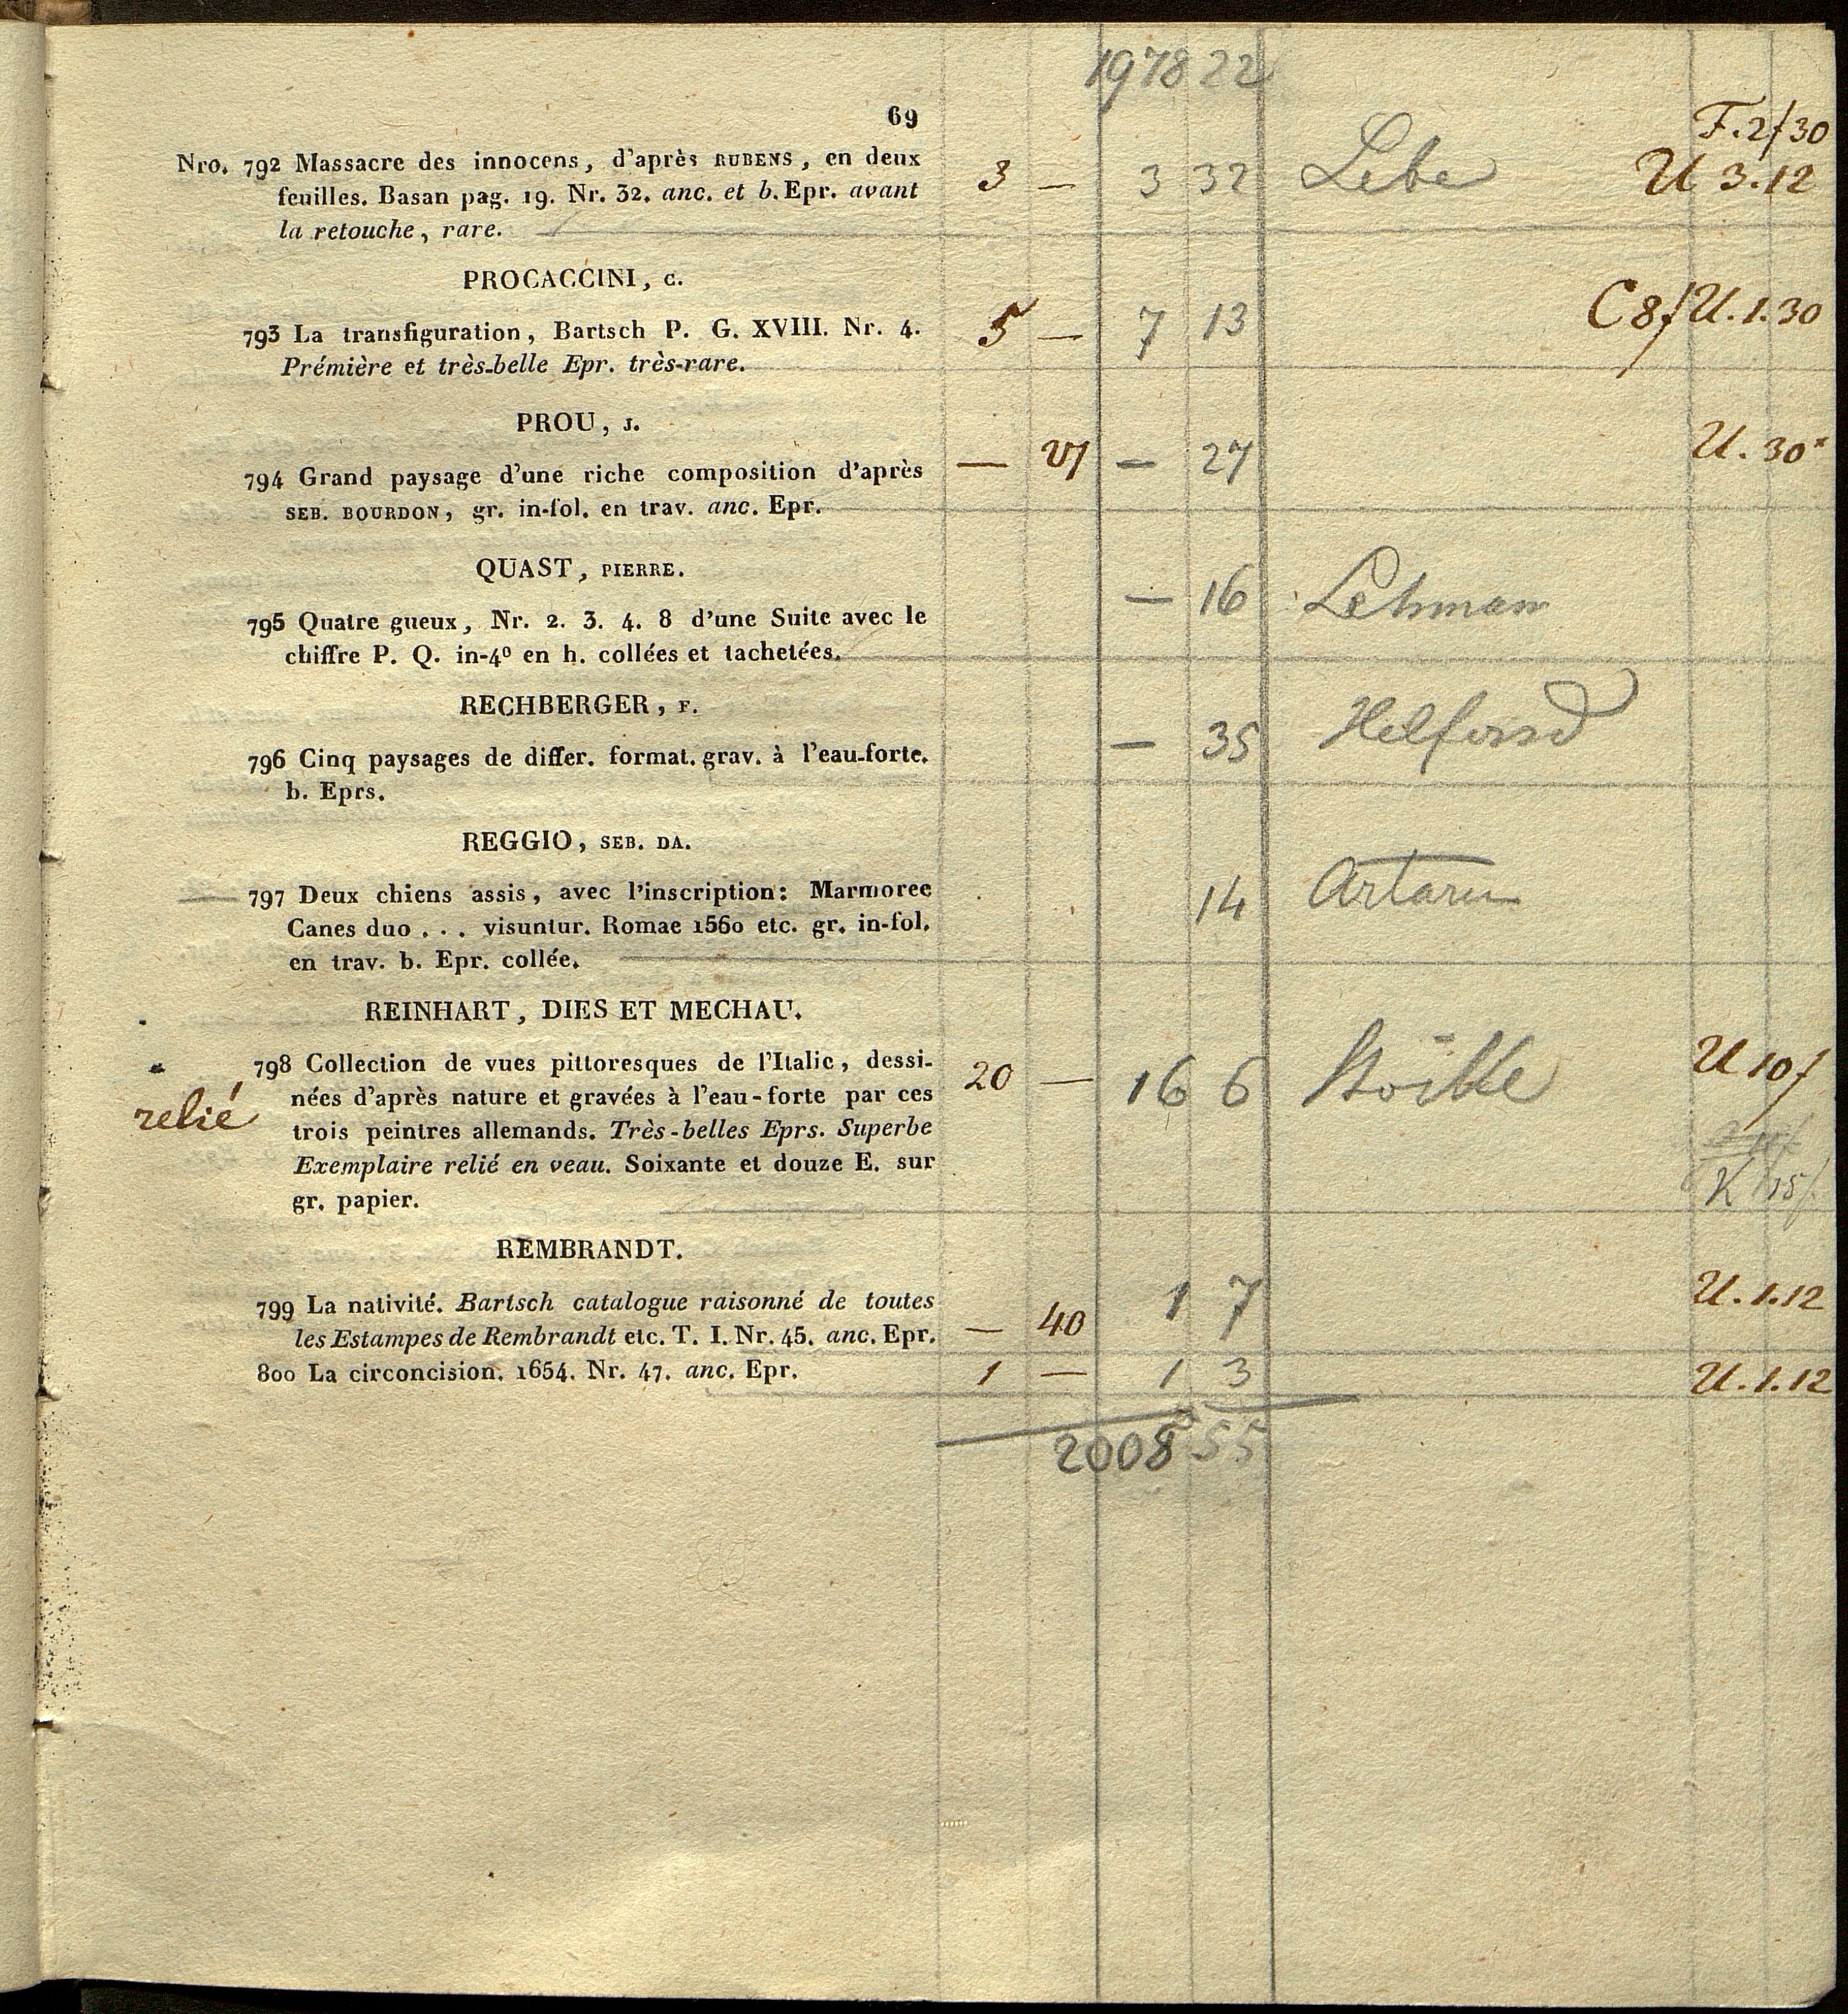 1978 22
69
F. 2f 30
Nro. 792 Massacre des innocens, d'après RUBENS, en deux 3 — 3 32 Lebe U 3.12
feuilles. Basan pag. 19. Nr. 32. anc. et b. Epr. avant
la retouche, rare.
PROCACCINI, C.
793 La transfiguration, Bartsch P. G. XVIII. Nr. 4. 5 — 7 13 C 8f U. 1.30
Prémière et très-belle Epr. très-rare.
PROU, J.
794 Grand paysage d'une riche composition d'après — 27 — 27 U. 30
SEB. BOURDON, gr. in-fol. en trav. anc. Epr.
QUAST, PIERRE.
795 Quatre gueux, Nr. 2. 3. 4. 8 d'une Suite avec le — 16 Lehman
chiffre P. Q. in-4º en h. collées et tachetées.
RECHBERGER, F.
796 Cinq paysages de differ. format. grav. à l'eau-forte. — 35
b. Eprs.
REGGIO, SEB. DA.
797 Deux chiens assis, avec l'inscription: Marmoree 14 Artaria
Canes duo . . . visuntur. Romae 1560 etc. gr. in-fol.
en trav. b. Epr. collée.
REINHART, DIES ET MECHAU.
798 Collection de vues pittoresques de l'Italie, dessi- 20 — 16 6 U 10f
relié nées d'après nature et gravées à l'eau-forte par ces
trois peintres allemands. Très-belles Eprs. Superbe
Exemplaire relié en veau. Soixante et douze E. sur K 15f
gr. papier.
REMBRANDT.
799 La nativité. Bartsch catalogue raisonné de toutes 1 7 U. 1.12
les Estampes de Rembrandt etc. T. I. Nr. 45. anc. Epr. — 40
800 La circoncision. 1654. Nr. 47. anc. Epr. 1 — 1 3 U. 1.12
2008 55